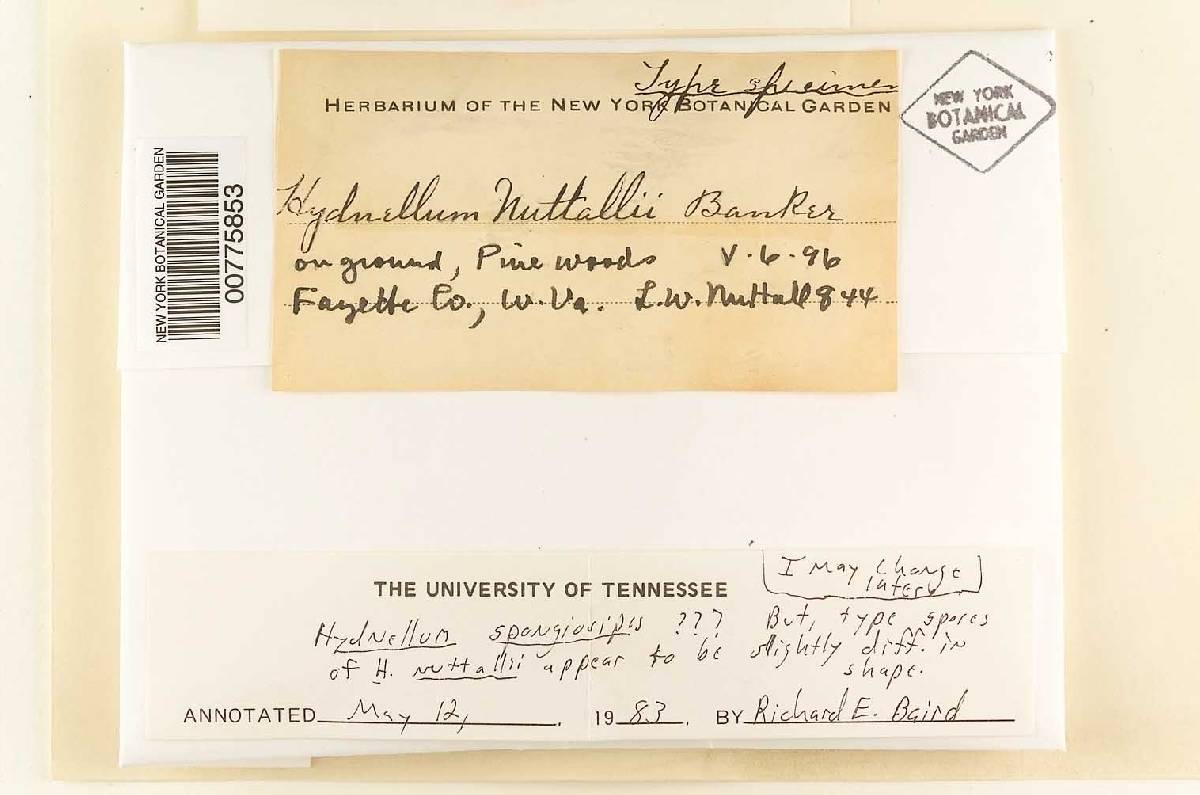 Type specimen
HERBARIUM OF THE NEW YORK BOTANICAL GARDEN
NEW YORK
BOTANICAL
GARDEN
NEW YORK BOTANICAL GARDEN
00775853
Hydnellum Nuttallii Banker
on ground, Pine woods V.6.96
Fayette Co., W.Va. L.W. Nuttall 844
THE UNIVERSITY OF TENNESSEE
I may change
later
Hydnellum spongiosipes ??? But, type spores
of H. nuttallii appear to be slightly diff. in
shape.
ANNOTATED May 12, 1983. BY Richard E. Baird